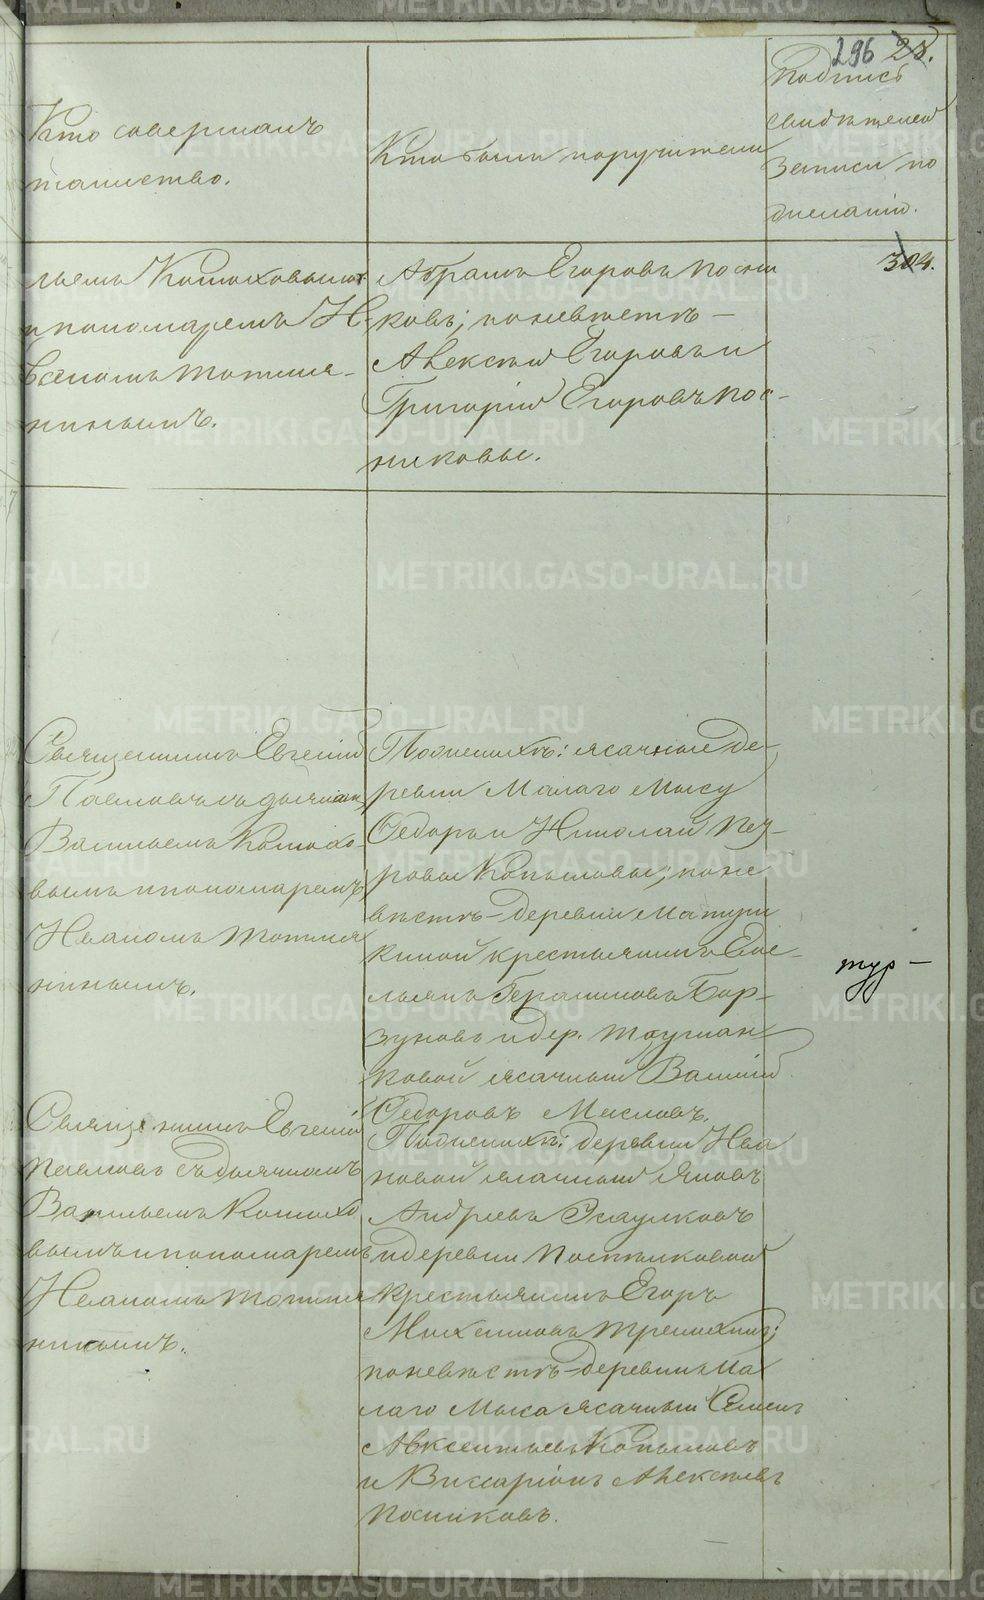 296 28.
Кто совершалъ
таинство.
Кто были поручители
Подпись
свидѣтелей
записи по
желанію.
304.
льемъ Конюховымъ
и пономаремъ И-
ваномъ Тотмя-
нинымъ.
Абрамъ Егоровъ Посни
ковъ; по невѣстѣ –
Алексѣй Егоровъ и
Григорій Егоровъ Пос-
никовы.
Священникъ Евгеній
Павловъ съ дьячкомъ
Васильемъ Конюхо-
вымъ и пономаремъ
Иваномъ Тотмя
нинымъ.
По женихѣ: ясачные де-
ревни Малаго Мысу
Ѳедоръ и Николай Пет-
ровы Копыловы; по не
вѣстѣ – деревни Матуш
киной крестьянинъ Еме-
льянъ Герасимовъ Бор-
зуновъ и дер.
ковой ясачный Василій
Ѳедоровъ Масловъ.
тур –
Священникъ Евгеній
Павловъ съ дьячкомъ
Васильемъ Конюхо
вымъ и пономаремъ
Иваномъ Тотмя
нинымъ.
По женихѣ: деревни Ива
новой ясачный Яковъ
Андреевъ Есаулковъ
и деревни Постниковой
крестьянинъ Егоръ
Михайловъ Трелихинъ;
по невѣстѣ – деревни Ма
лаго Мыса ясачный Семенъ
Авксентьевъ Копыловъ
и Виссаріонъ Алексѣевъ
Посниковъ.
METRIKI.GASO-URAL.RU